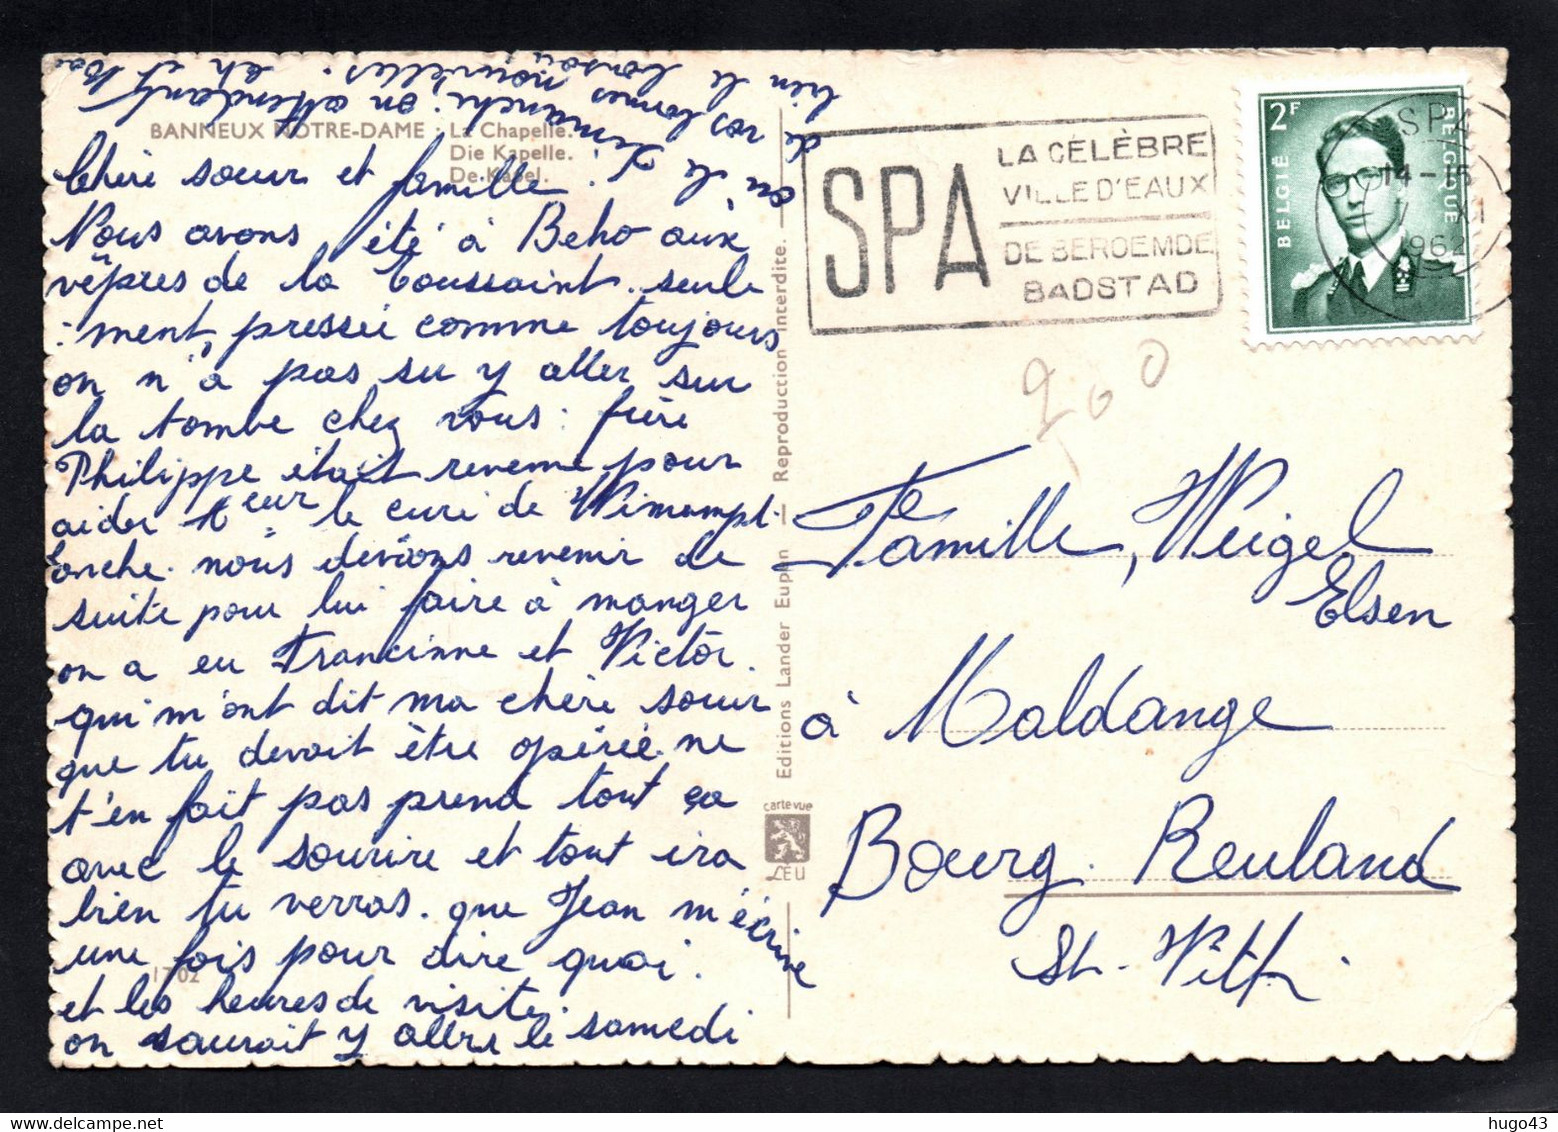 BANNEUX NOTRE-DAME - La Chapelle.
Die Kapelle.
De Kapel.
Chère soeur et famille.
Nous avons été à Beho aux
vêpres de la Toussaint. seule
:ment, pressée comme toujours
on n'a pas su y aller sur
la tombe chez vous: frère
Philippe était revenu pour
aider Meur le curé de Wimompl.
nous devions revenir de
suite pour lui faire à manger
on a eu Francinne et Victor.
qui m'ont dit ma chère soeur
que tu devait être opérée. ne
t'en fait pas prend tout ça
avec le sourire et tout ira
bien tu verras. que Jean m'écrive
une fois pour dire quoi.
et les heures de visite.
on saurait y aller le samedi
ou le dimanche. on attendant
de vos bonnes nouvelles. eh et
bien le bonsoir
1702
Editions Lander Eupen — Reproduction interdite.
carte vue
LEU
SPA
LA CÉLÈBRE
VILLE D'EAUX
DE BEROEMDE
BADSTAD
2F
BELGIË
BELGIQUE
SPA
14-15
XI
1962
200
Famille, Weigel
Elsen
à Maldange
Bourg. Reuland
St. Vith.
hugo43